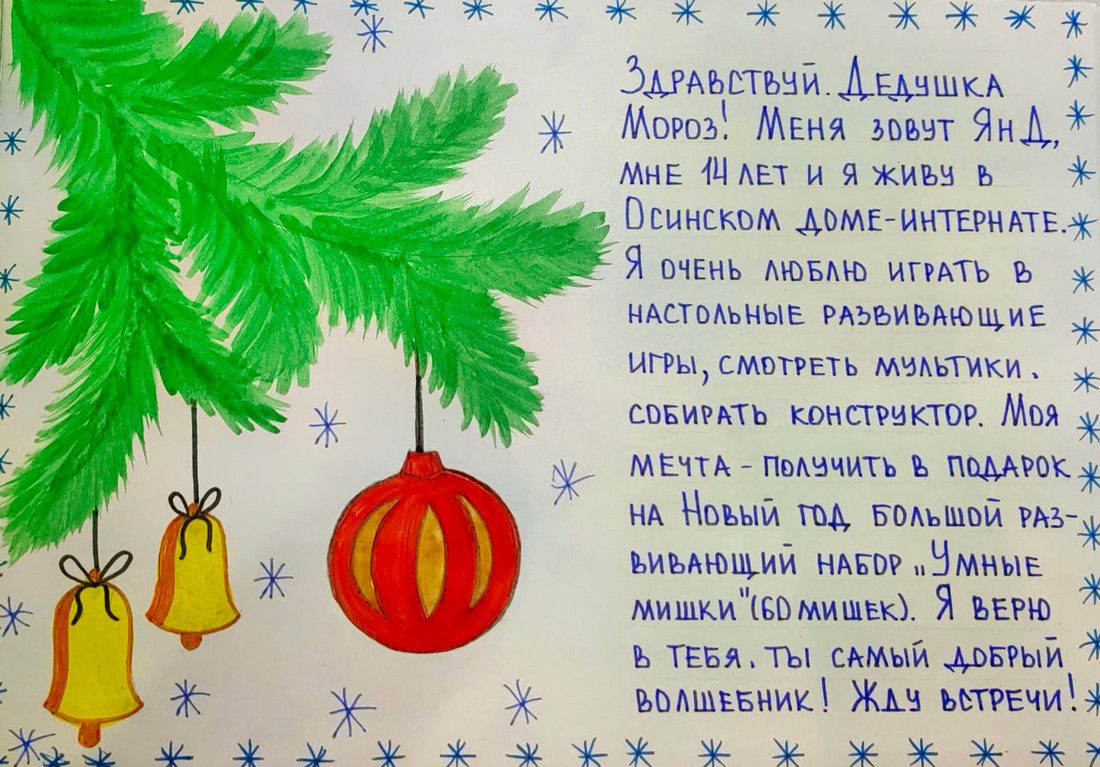 Здравствуй. Дедушка
Мороз! Меня зовут Ян Д,
мне 14 лет и я живу в
Осинском доме-интернате.
Я очень люблю играть в
настольные развивающие
игры, смотреть мультики.
собирать конструктор. Моя
мечта - получить в подарок
на Новый год большой раз-
вивающий набор „Умные
мишки" (60 мишек). Я верю
в тебя. ты самый добрый
волшебник! Жду встречи!